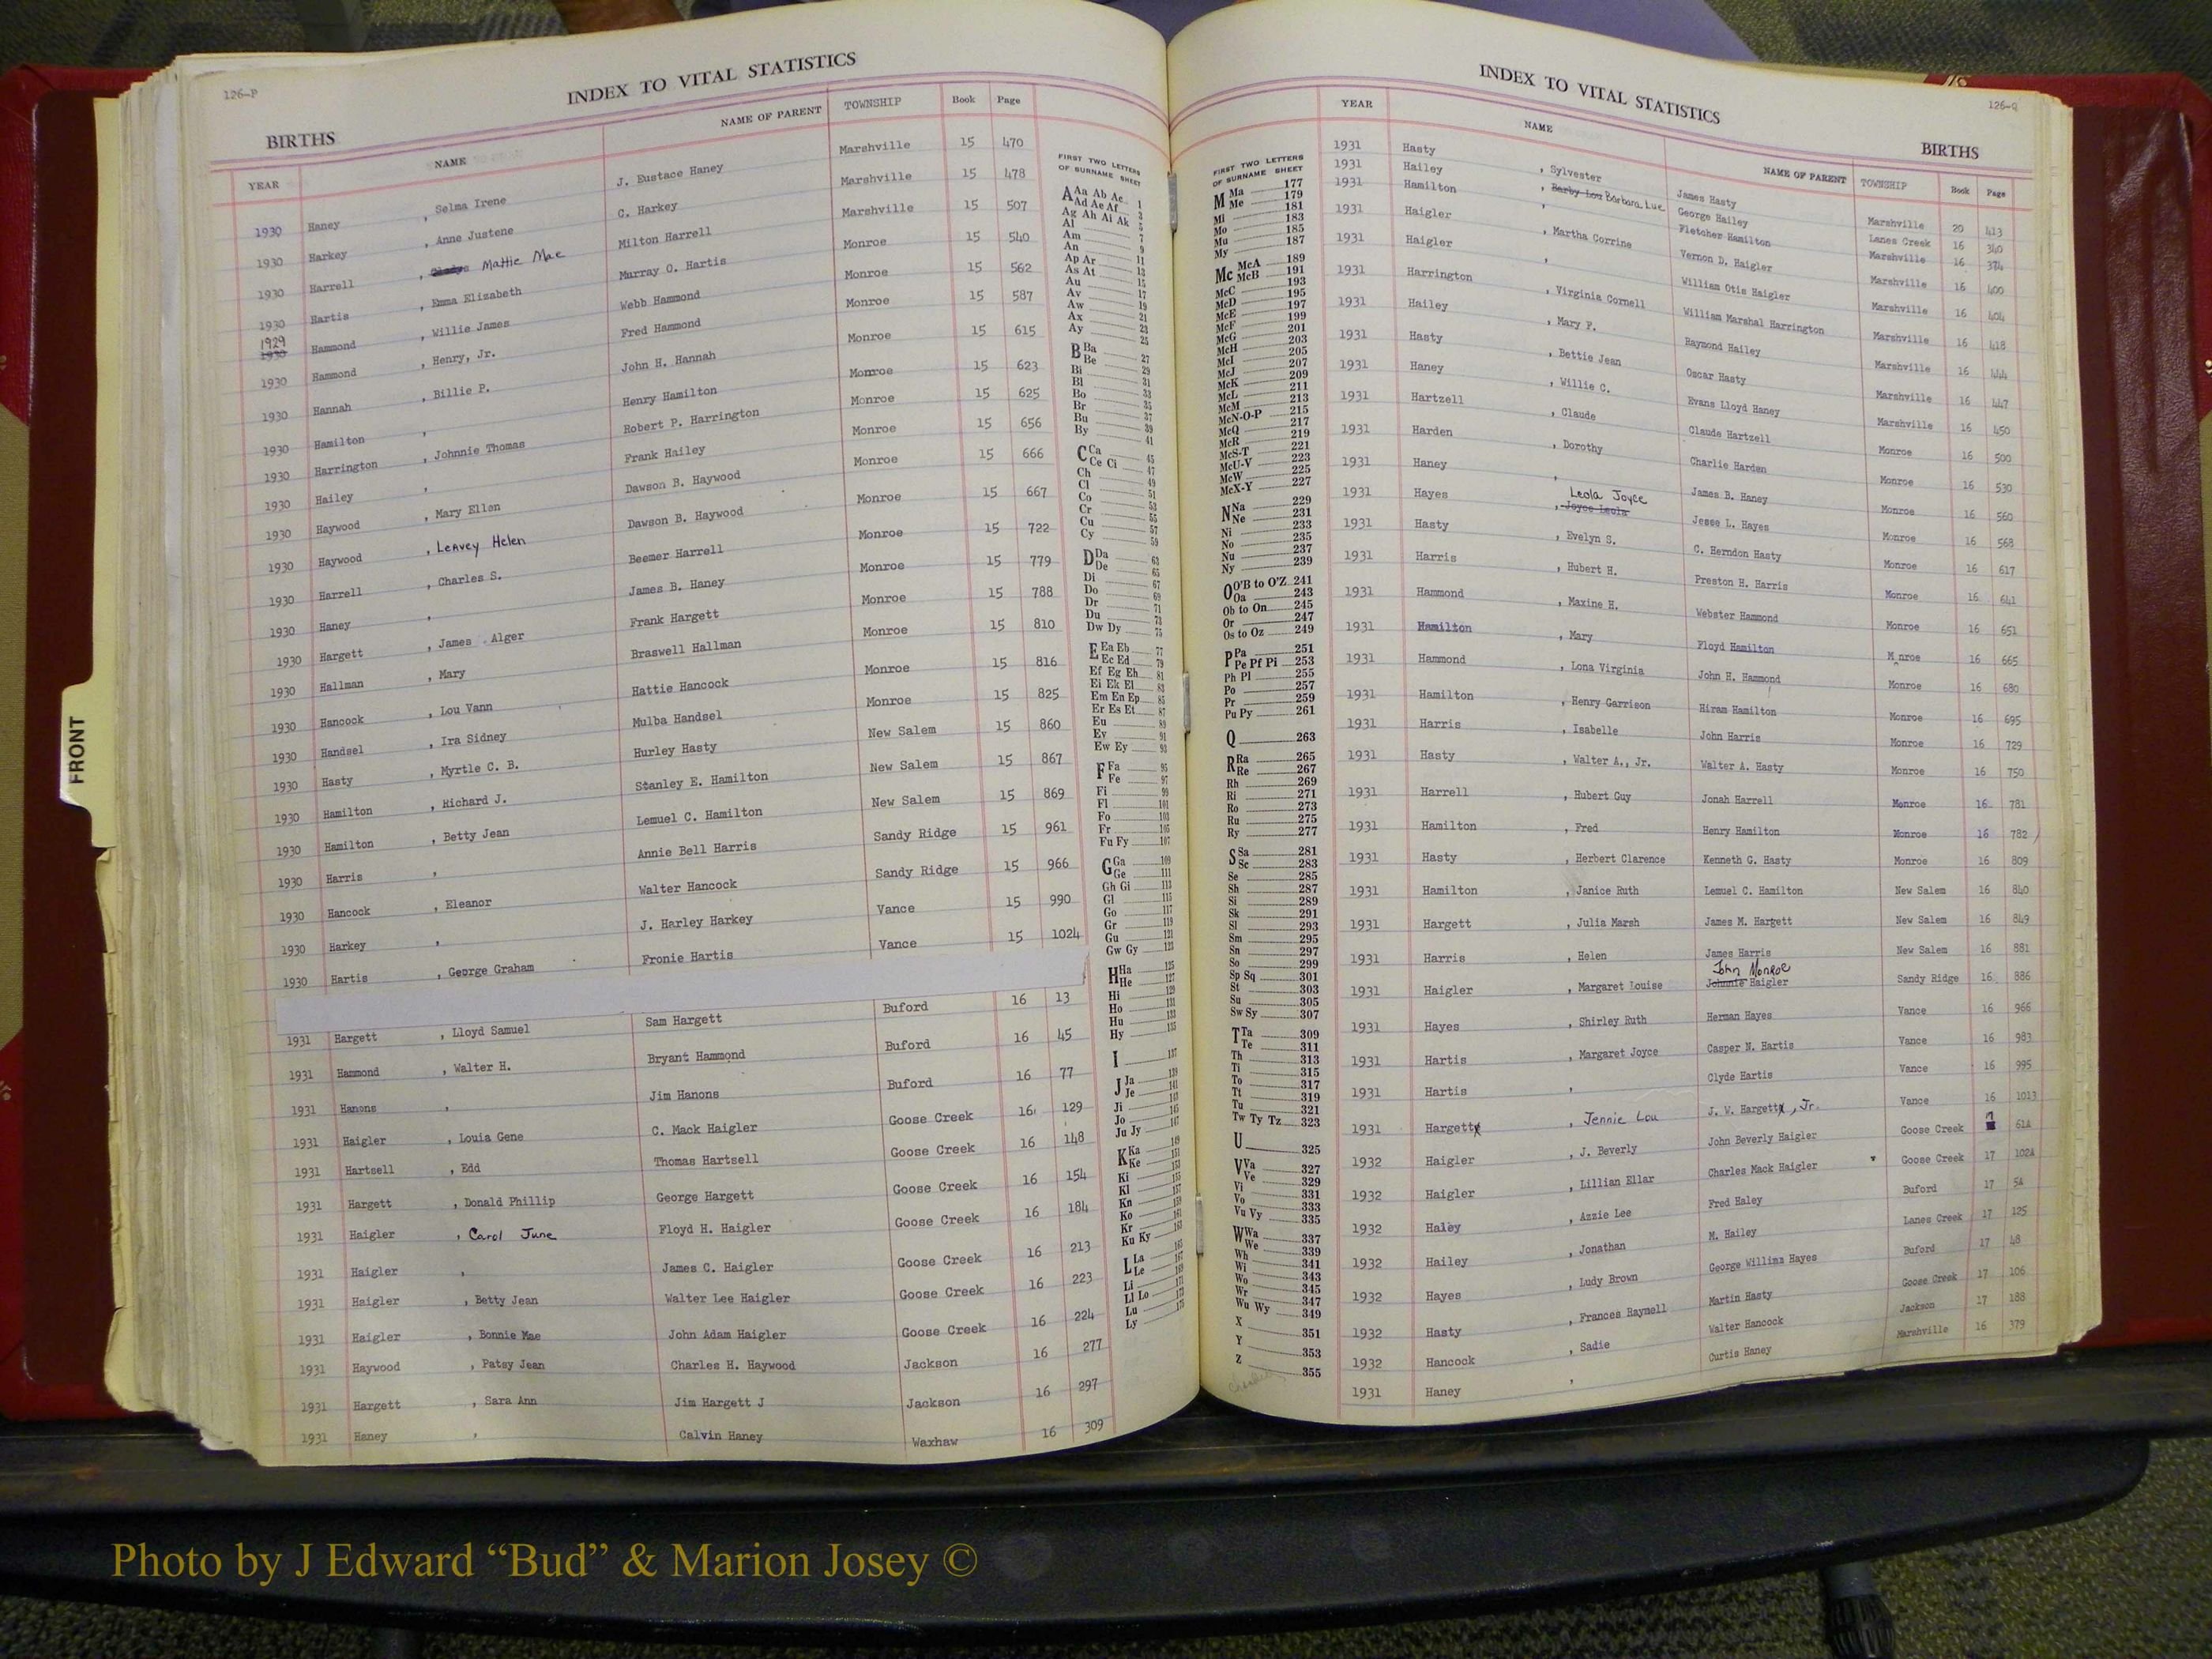 126-P
INDEX TO VITAL STATISTICS
BIRTHS
YEAR NAME NAME OF PARENT TOWNSHIP Book Page
1930 Haney , Selma Irene J. Eustace Haney Marshville 15 470
1930 Harkey , Anne Justene C. Harkey Marshville 15 478
1930 Harrell , Gladys Mattie Mae Milton Harrell Marshville 15 507
1930 Hartis , Emma Elizabeth Murray O. Hartis Monroe 15 540
1929
1930 Hammond , Willie James Webb Hammond Monroe 15 562
1930 Hammond , Henry, Jr. Fred Hammond Monroe 15 587
1930 Hannah , Billie P. John H. Hannah Monroe 15 615
1930 Hamilton , Henry Hamilton Monroe 15 623
1930 Harrington , Johnnie Thomas Robert P. Harrington Monroe 15 625
1930 Hailey , Frank Hailey Monroe 15 656
1930 Haywood , Mary Ellen Dawson B. Haywood Monroe 15 666
1930 Haywood , Leavey Helen Dawson B. Haywood Monroe 15 667
1930 Harrell , Charles S. Beemer Harrell Monroe 15 722
1930 Haney , James B. Haney Monroe 15 779
1930 Hargett , James Alger Frank Hargett Monroe 15 788
1930 Hallman , Mary Braswell Hallman Monroe 15 810
1930 Hancock , Lou Vann Hattie Hancock Monroe 15 816
1930 Handsel , Ira Sidney Mulba Handsel Monroe 15 825
1930 Hasty , Myrtle C. B. Hurley Hasty New Salem 15 860
1930 Hamilton , Richard J. Stanley E. Hamilton New Salem 15 867
1930 Hamilton , Betty Jean Lemuel C. Hamilton New Salem 15 869
1930 Harris , Annie Bell Harris Sandy Ridge 15 961
1930 Hancock , Eleanor Walter Hancock Sandy Ridge 15 966
1930 Harkey , J. Harley Harkey Vance 15 990
1930 Hartis , George Graham Fronie Hartis Vance 15 1024
1931 Hargett , Lloyd Samuel Sam Hargett Buford 16 13
1931 Hammond , Walter H. Bryant Hammond Buford 16 45
1931 Hanons , Jim Hanons Buford 16 77
1931 Haigler , Louia Gene C. Mack Haigler Goose Creek 16 129
1931 Hartsell , Edd Thomas Hartsell Goose Creek 16 148
1931 Hargett , Donald Phillip George Hargett Goose Creek 16 154
1931 Haigler , Carol June Floyd H. Haigler Goose Creek 16 184
1931 Haigler , James C. Haigler Goose Creek 16 213
1931 Haigler , Betty Jean Walter Lee Haigler Goose Creek 16 223
1931 Haigler , Bonnie Mae John Adam Haigler Goose Creek 16 224
1931 Haywood , Patsy Jean Charles H. Haywood Jackson 16 277
1931 Hargett , Sara Ann Jim Hargett J Jackson 16 297
1931 Haney , Calvin Haney Waxhaw 16 309
FIRST TWO LETTERS
OF SURNAME SHEET
A Aa Ab Ac 1
Ad Ae Af 3
Ag Ah Ai Ak 5
Al 7
Am 9
An 11
Ap Ar 13
As At 15
Au 17
Av 19
Aw 21
Ax 23
Ay 25
B Ba 27
Be 29
Bi 31
Bl 33
Bo 35
Br 37
Bu 39
By 41
C Ca 45
Ce Ci 47
Ch 49
Cl 51
Co 53
Cr 55
Cu 57
Cy 59
D Da 63
De 65
Di 67
Do 69
Dr 71
Du 73
Dw Dy 75
E Ea Eb 77
Ec Ed 79
Ef Eg Eh 81
Ei Ek El 83
Em En Ep 85
Er Es Et 87
Eu 89
Ev 91
Ew Ey 93
F Fa 95
Fe 97
Fi 99
Fl 101
Fo 103
Fr 105
Fu Fy 107
G Ga 109
Ge 111
Gh Gi 113
Gl 115
Go 117
Gr 119
Gu 121
Gw Gy 123
H Ha 125
He 127
Hi 129
Ho 131
Hu 133
Hy 135
I 137
J Ja 139
Je 141
Ji 143
Jo 145
Ju Jy 147
K Ka 149
Ke 151
Ki 153
Kl 155
Kn 157
Ko 159
Kr 161
Ku Ky 163
L La 165
Le 167
Li 169
Ll Lo 171
Lu 173
Ly 175
FRONT
126-Q
INDEX TO VITAL STATISTICS
BIRTHS
FIRST TWO LETTERS
OF SURNAME SHEET
M Ma 177
Me 179
Mi 181
Mo 183
Mu 185
My 187
Mc McA 189
McB 191
McC 193
McD 195
McE 197
McF 199
McG 201
McH 203
McI 205
McJ 207
McK 209
McL 211
McM 213
McN-O-P 215
McQ 217
McR 219
McS-T 221
McU-V 223
McW 225
McX-Y 227
N Na 229
Ne 231
Ni 233
No 235
Nu 237
Ny 239
O O'B to O'Z 241
Oa 243
Ob to On 245
Or 247
Os to Oz 249
P Pa 251
Pe Pf Pi 253
Ph Pl 255
Po 257
Pr 259
Pu Py 261
Q 263
R Ra 265
Re 267
Rh 269
Ri 271
Ro 273
Ru 275
Ry 277
S Sa 281
Sc 283
Se 285
Sh 287
Si 289
Sk 291
Sl 293
Sm 295
Sn 297
So 299
Sp Sq 301
St 303
Su 305
Sw Sy 307
T Ta 309
Te 311
Th 313
Ti 315
To 317
Tt 319
Tu 321
Tw Ty Tz 323
U 325
V Va 327
Ve 329
Vi 331
Vo 333
Vu Vy 335
W Wa 337
We 339
Wh 341
Wi 343
Wo 345
Wr 347
Wu Wy 349
X 351
Y 353
Z 355
YEAR NAME NAME OF PARENT TOWNSHIP Book Page
1931 Hasty , Sylvester James Hasty Marshville 20 413
1931 Hailey , Barby Lou Barbara Lue George Hailey Lanes Creek 16 340
1931 Hamilton , Fletcher Hamilton Marshville 16 374
1931 Haigler , Martha Corrine Vernon D. Haigler Marshville 16 400
1931 Haigler , William Otis Haigler Marshville 16 404
1931 Harrington , Virginia Cornell William Marshal Harrington Marshville 16 418
1931 Hailey , Mary P. Raymond Hailey Marshville 16 444
1931 Hasty , Bettie Jean Oscar Hasty Marshville 16 447
1931 Haney , Willie C. Evans Lloyd Haney Marshville 16 450
1931 Hartzell , Claude Claude Hartzell Monroe 16 500
1931 Harden , Dorothy Charlie Harden Monroe 16 530
1931 Haney , James B. Haney Monroe 16 560
Leola Joyce
1931 Hayes , Joyce Leola Jesse L. Hayes Monroe 16 568
1931 Hasty , Evelyn S. C. Herndon Hasty Monroe 16 617
1931 Harris , Hubert H. Preston H. Harris Monroe 16 641
1931 Hammond , Maxine H. Webster Hammond Monroe 16 651
1931 Hamilton , Mary Floyd Hamilton M nroe 16 665
1931 Hammond , Lona Virginia John H. Hammond Monroe 16 680
1931 Hamilton , Henry Garrison Hiram Hamilton Monroe 16 695
1931 Harris , Isabelle John Harris Monroe 16 729
1931 Hasty , Walter A., Jr. Walter A. Hasty Monroe 16 750
1931 Harrell , Hubert Guy Jonah Harrell Monroe 16 781
1931 Hamilton , Fred Henry Hamilton Monroe 16 782
1931 Hasty , Herbert Clarence Kenneth G. Hasty Monroe 16 809
1931 Hamilton , Janice Ruth Lemuel C. Hamilton New Salem 16 840
1931 Hargett , Julia Marsh James M. Hargett New Salem 16 849
1931 Harris , Helen James Harris New Salem 16 881
John Monroe
1931 Haigler , Margaret Louise Johnnie Haigler Sandy Ridge 16 886
1931 Hayes , Shirley Ruth Herman Hayes Vance 16 966
1931 Hartis , Margaret Joyce Casper N. Hartis Vance 16 983
1931 Hartis , Clyde Hartis Vance 16 995
1931 Hargett , Jennie Lou J. W. Hargett, Jr. Vance 16 1013
1932 Haigler , J. Beverly John Beverly Haigler Goose Creek 61A
1932 Haigler , Lillian Ellar Charles Mack Haigler Goose Creek 17 102A
1932 Haley , Azzie Lee Fred Haley Buford 17 54
1932 Hailey , Jonathan M. Hailey Lanes Creek 17 125
1932 Hayes , Ludy Brown George William Hayes Buford 17 48
1932 Hasty , Frances Raynell Martin Hasty Goose Creek 17 106
1932 Hancock , Sadie Walter Hancock Jackson 17 188
1931 Haney , Curtis Haney Marshville 16 379
Photo by J Edward “Bud” & Marion Josey ©